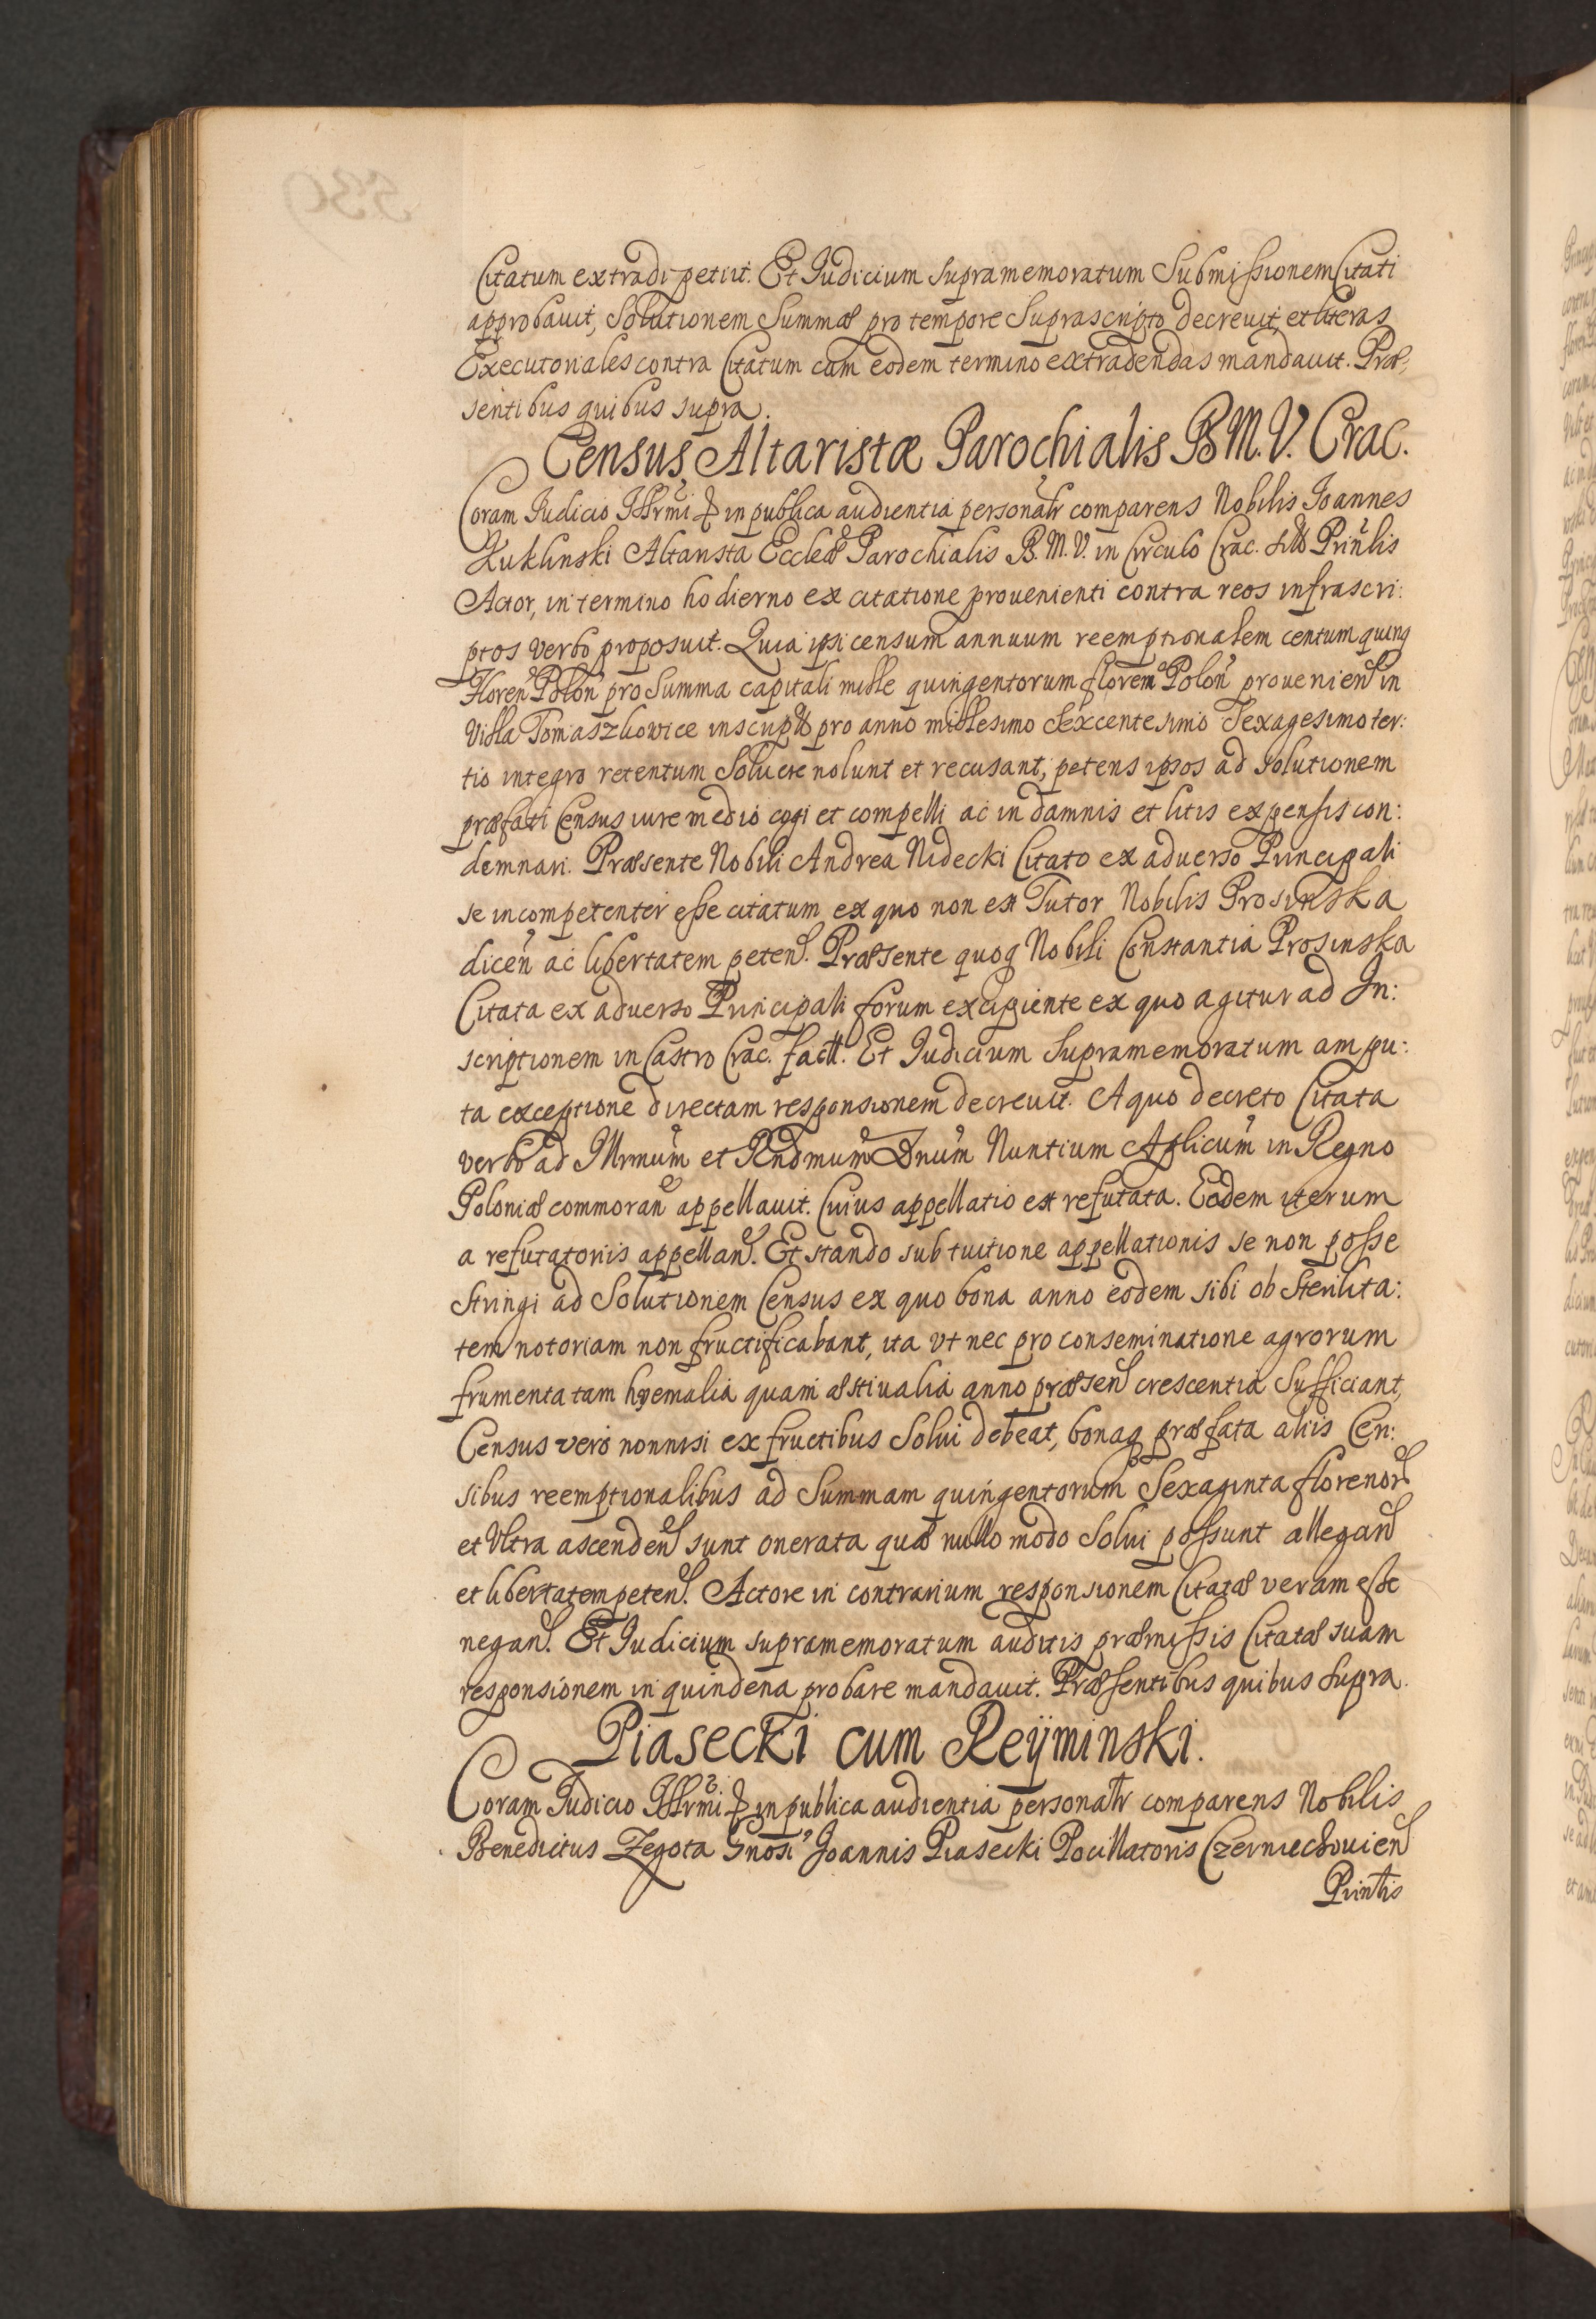 Citatum extradi petiit. Et Iudicium supramemoratum Submissionem Citati
approbauit, Solutionem Summæ pro tempore Suprascripto decreuit, et literas
Executoriales contra Citatum cum eodem termino extradendas mandauit. Præ:
sentibus quibus supra.
Census Altaristæ Parochialis B M. V. Crac.
Coram Iudicio Illrmi in publica audientia personalr comparens Nobilis Ioannes
Kuklinski Altarista Eccleæ Parochialis B. M. V. in Circulo Crac. Prinlis
Actor, in termino hodierno ex citatione prouenienti contra reos infrascri:
ptos verbo proposuit. Quia ipsi censum annuum reemptionalem centum quinq
Floren Polon pro Summa capitali mille quingentorum florem Polon prouenien in
Villa Tomaszkowice inscript pro anno millesimo Sexcentesimo Sexagesimo ter:
tio integro retentum Soluere nolunt et recusant, petens ipsos ad Solutionem
præfati Census iure medio cogi et compelli ac in damnis et litis expensis con:
demnari. Præsente Nobili Andrea Nidecki Citato ex aduerso Principali
se incompetenter esse citatum ex quo non est Tutor Nobilis Prosinska
dicen ac libertatem peten. Præsente quoq Nobili Constantia Prosinska
Citata ex aduerso Principali forum excipiente ex quo agitur ad In:
scriptionem in Castro Crac. fact. Et Iudicium Supramemoratum ampu:
ta exceptione directam responsionem decreuit. A quo decreto Citata
verbo ad Illrmum et Rndmum Dnum Nuntium Aplicum in Regno
Poloniæ commoran appellauit. Cuius appellatio est refutata. Eadem iterum
a refutatoriis appellan. Et stando sub tuitione appellationis se non posse
stringi ad Solutionem Census ex quo bona anno eodem sibi ob sterilita:
tem notoriam non fructificabant, ita vt nec pro conseminatione agrorum
frumenta tam hyemalia quam æstiualia anno præsen crescentia Sufficiant,
Census vero nonnisi ex fructibus Solui debeat, bonaq præfata aliis Cen:
sibus reemptionalibus ad Summam quingentorum Sexaginta florenor
et Vltra ascenden sunt onerata quæ nullo modo Solui possunt allegan
et libertatem peten. Actore in contrarium responsionem Citatæ veram esse
negan. Et Iudicium supramemoratum auditis præmissis Citatæ suam
responsionem in quindena probare mandauit. Præsentibus quibus supra.
Piasecki cum Reÿminski.
Coram Iudicio Illrmi in publica audientia personalr comparens Nobilis
Benedictus Zegota Gnosi Joannis Piasecki Pocillatoris Czerniechouien
Prinlis